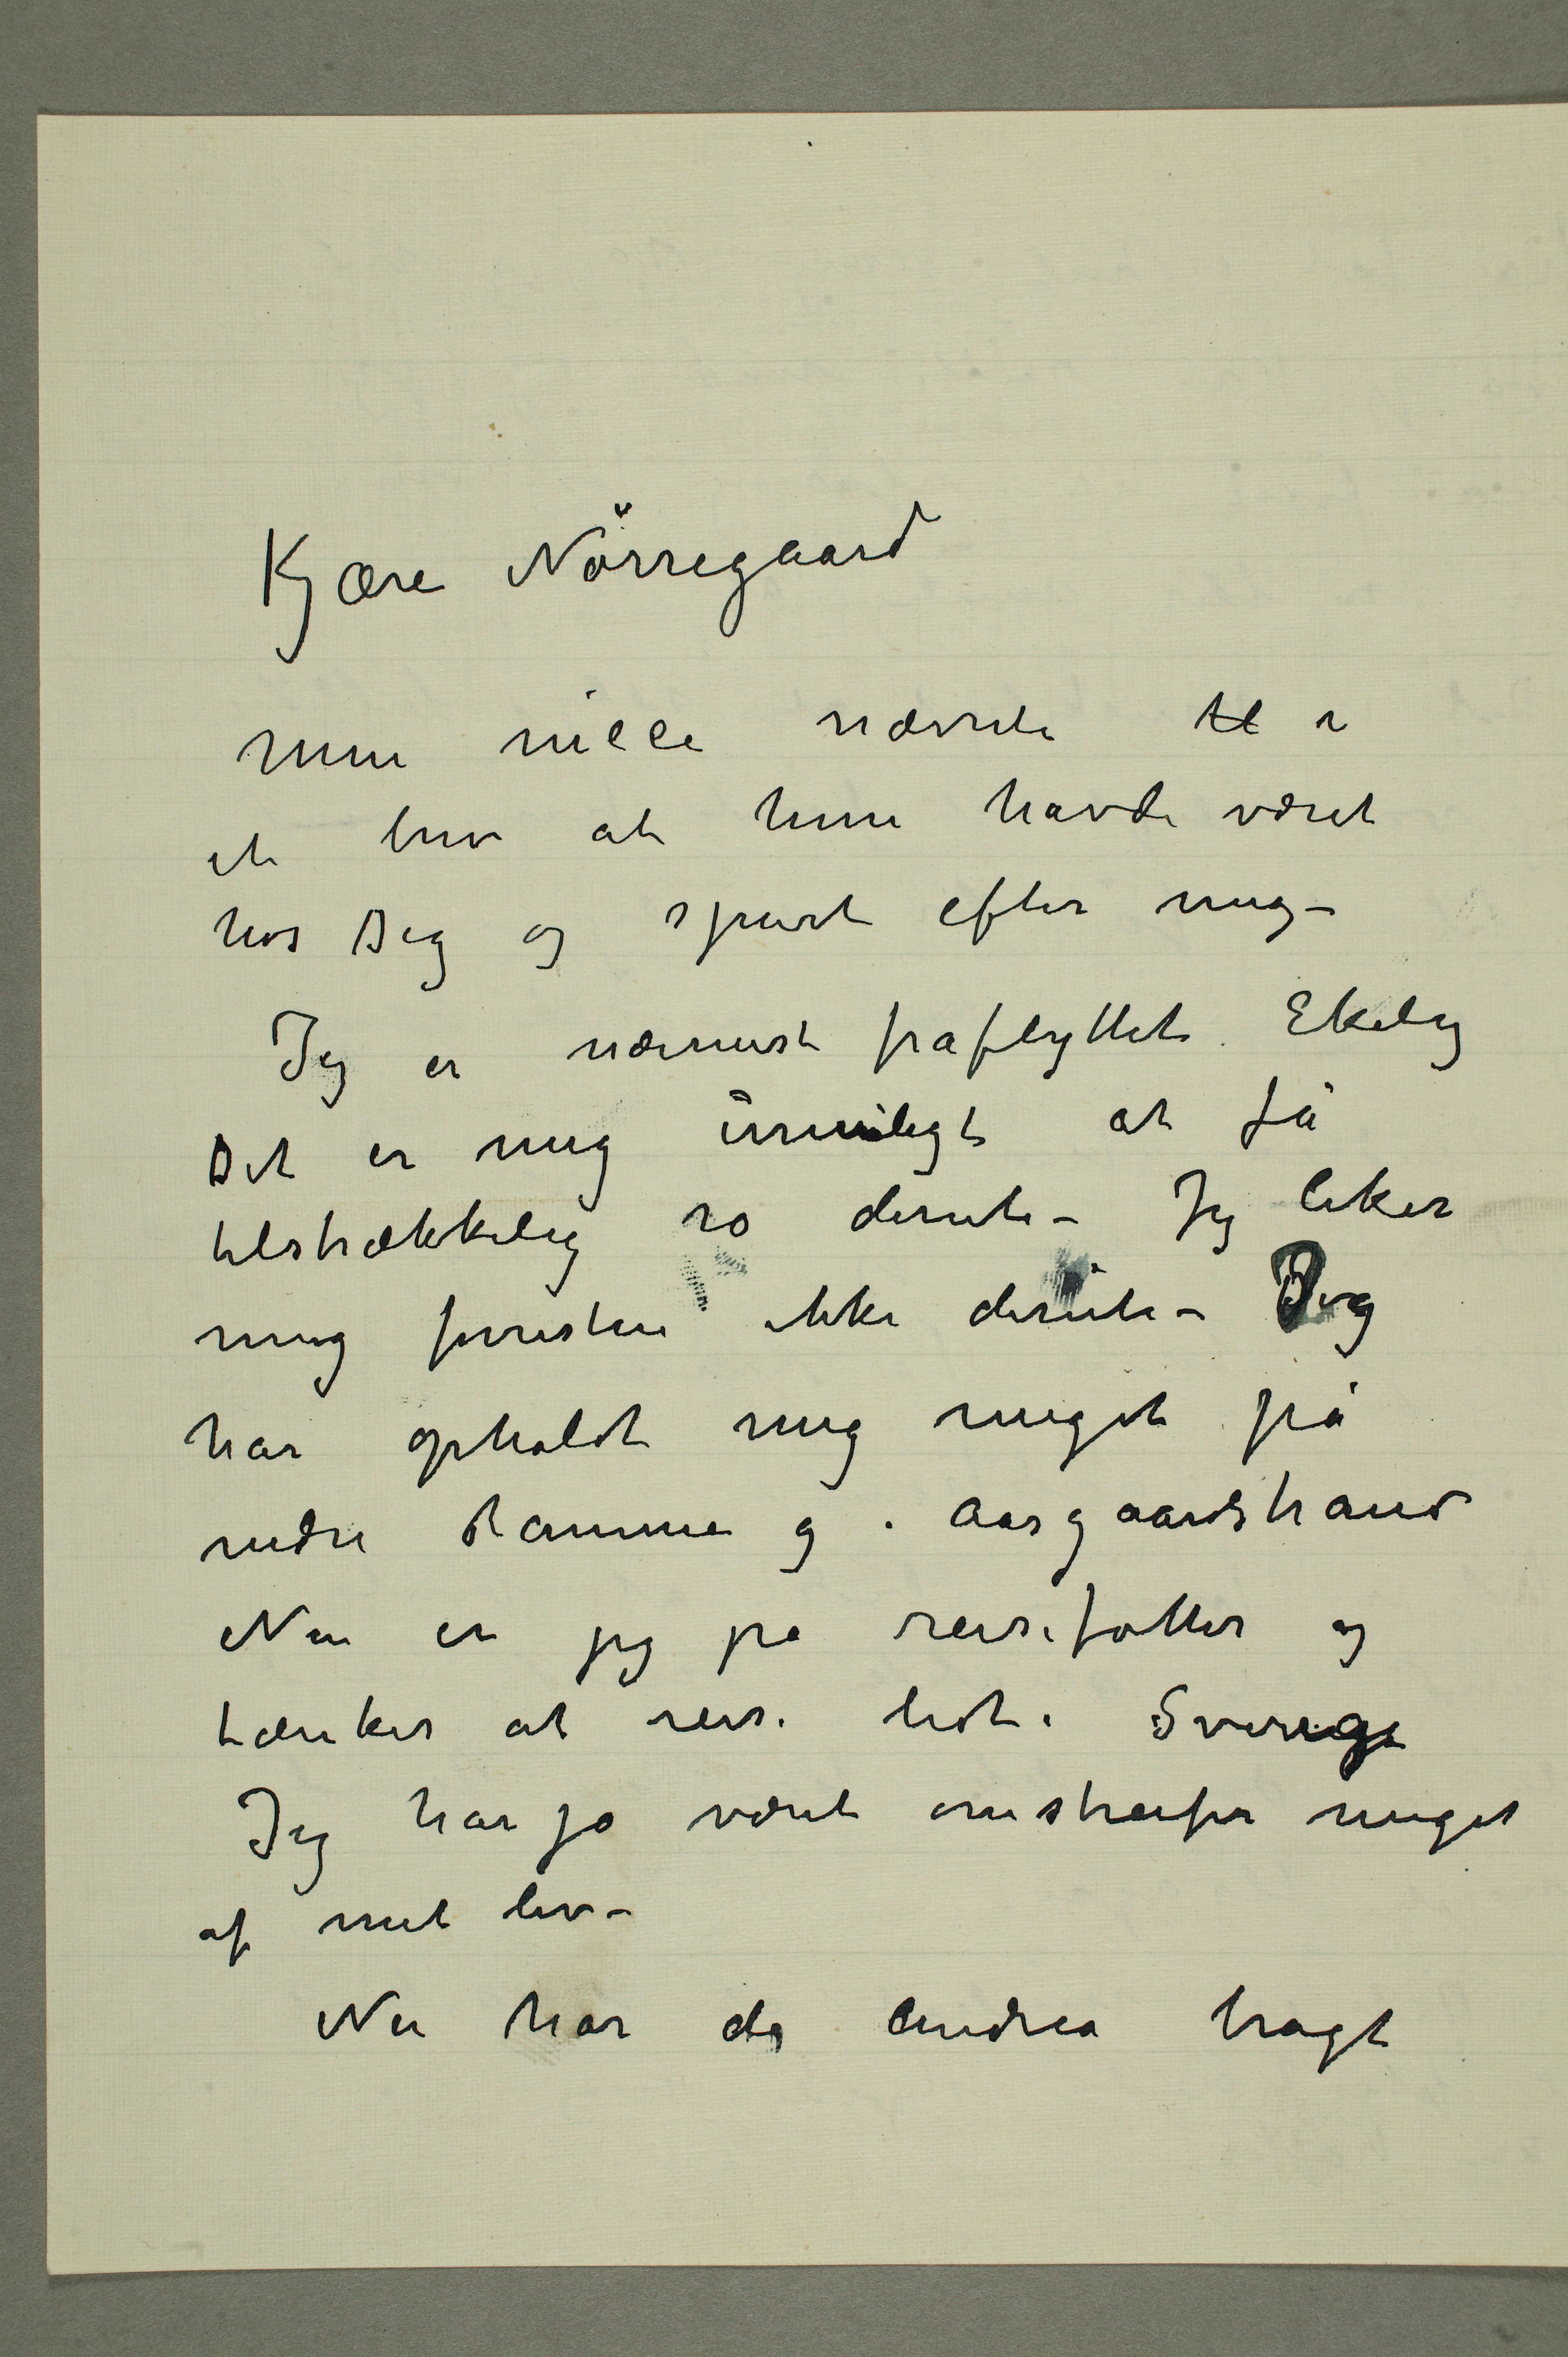 Kjære Nörregaard
Min niece nævnte til i
et brev at hun havde været
hos Dig og spurt efter mig –
Jeg er nærmest fraflyttet Ekely
Det er mig umuligt at få
tilstrækkelig ro derute – Jeg liker
mig forresten ikke derute – Jeg
har opholdt mig meget på
nedre Ramme og i Aasgaardstrand
Nu er jeg på reisefötter og
tænker at reise lidt i Sverige
Jeg har jo været omstreifer meget
af mit liv –
Nu har da Andrea bragt